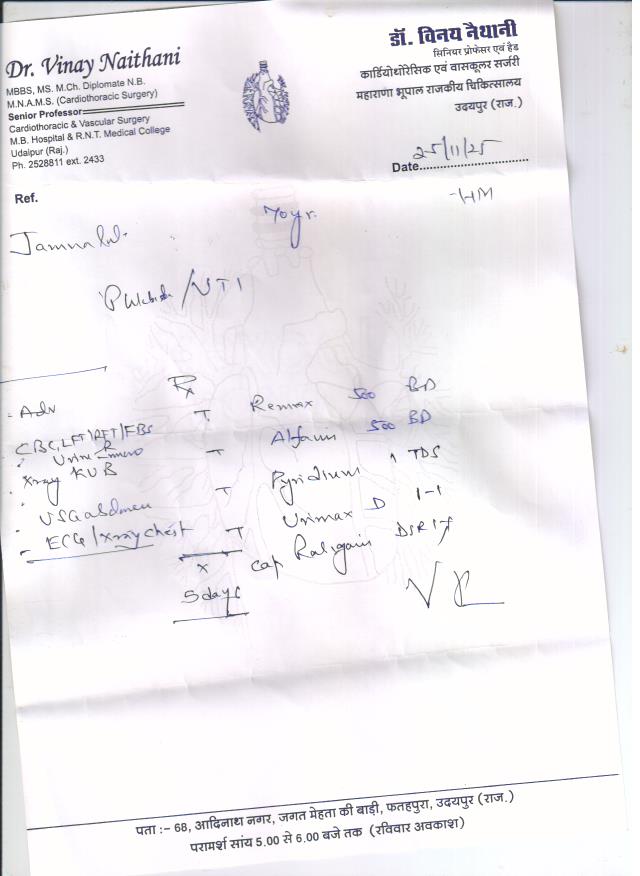 Dr. Vinay Naithani
MBBS, MS. M.Ch. Diplomate N.B.
M.N.A.M.S. (Cardiothoracic Surgery)
Senior Professor
Cardiothoracic & Vascular Surgery
M.B. Hospital & R.N.T. Medical College
Udaipur (Raj.)
Ph. 2528811 ext. 2433
डॉ. विनय नैथानी
सिनियर प्रोफेसर एवं हैड
कार्डियोथोरेसिक एवं वासकूलर सर्जरी
महाराणा भूपाल राजकीय चिकित्सालय
उदयपुर (राज.)
Date 25/11/25
Ref.
70 yr.
/UTI
Adv
Rx
CBC, LFT/RFT/FBS
Urine R
Xray KUB
USG abdomen
ECG/Xray chest
T 500 BD
T 500 BD
T Pyridium 1 TDS
T Urimax D 1-1
Cap DSR 1
x
5 days
पता :– 68, आदिनाथ नगर, जगत मेहता की बाड़ी, फतहपुरा, उदयपुर (राज.)
परामर्श सांय 5.00 से 6.00 बजे तक (रविवार अवकाश)